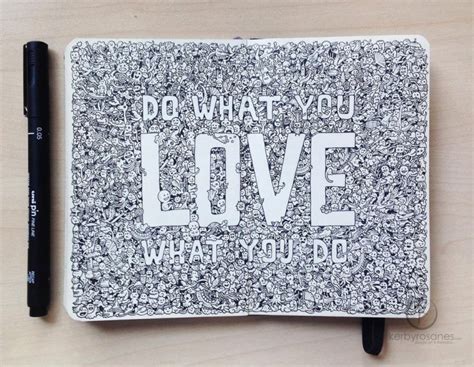 DO WHAT YOU
LOVE
WHAT YOU DO
0.05
uni pin
FINE LINE
kerbyrosanes